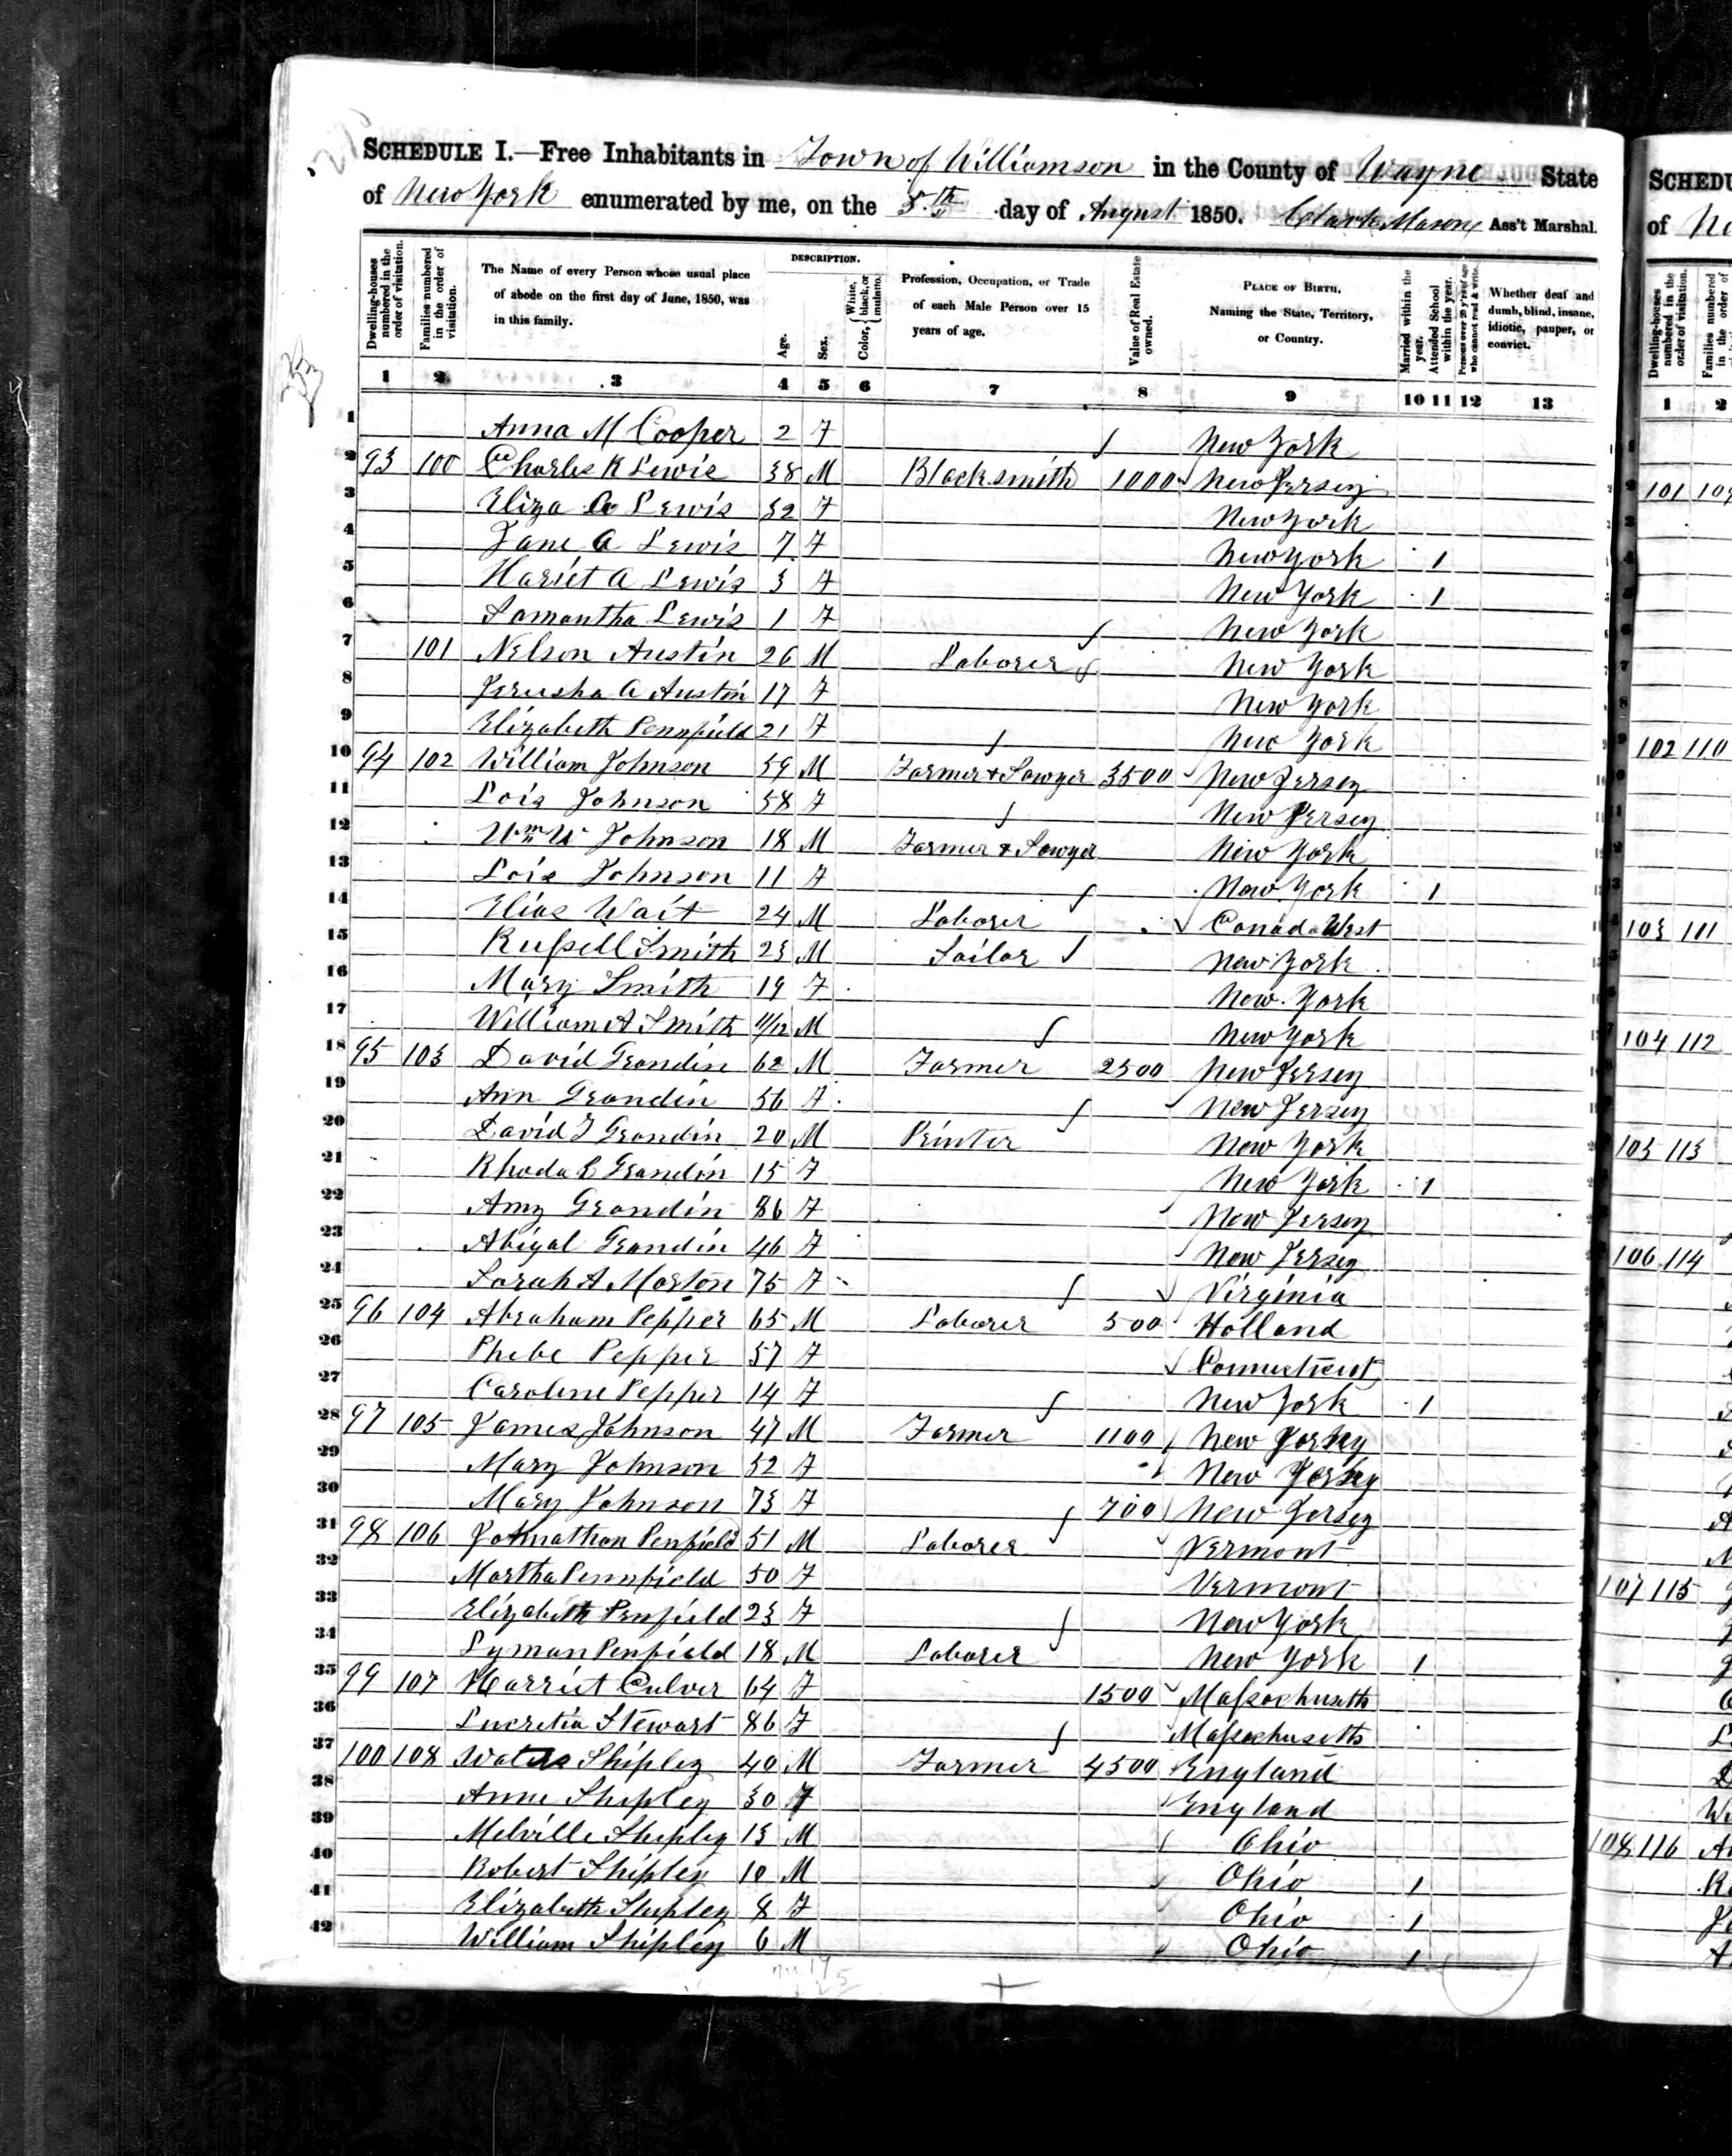 SCHEDULE I.—Free Inhabitants in Town of Williamson in the County of Wayne State
of New York enumerated by me, on the 5th day of August 1850. Clark Mason Ass't Marshal.
Dwelling-houses numbered in the order of visitation.
Families numbered in the order of visitation.
The Name of every Person whose usual place of abode on the first day of June, 1850, was in this family.
DESCRIPTION.
Age.
Sex.
Color, { White, black, or mulatto.
Profession, Occupation, or Trade of each Male Person over 15 years of age.
Value of Real Estate owned.
PLACE OF BIRTH, Naming the State, Territory, or Country.
Married within the year.
Attended School within the year.
Persons over 20 y'rs of age who cannot read & write.
Whether deaf and dumb, blind, insane, idiotic, pauper, or convict.
1 2 3 4 5 6 7 8 9 10 11 12 13
1 Anna M Cooper 2 F New York
2 93 100 Charles K Lewis 38 M Blacksmith 1000 New Jersey
3 Eliza Lewis 32 F New York
4 Jane A Lewis 7 F New York 1
5 Hariet A Lewis 3 F New York 1
6 Samantha Lewis 1 F New York
7 101 Nelson Austin 26 M Laborer New York
8 Jerusha A Austin 17 F New York
9 Elizabeth Pennfield 21 F New York
10 94 102 William Johnson 59 M Farmer & Sawyer 3500 New Jersey
11 Lois Johnson 58 F New Jersey
12 Wm W Johnson 18 M Farmer & Sawyer New York
13 Lois Johnson 11 F New York 1
14 Elias Wait 24 M Laborer Canada West
15 Russell Smith 23 M Sailor New York
16 Mary Smith 19 F New York
17 William A Smith 11/12 M New York
18 95 103 David Grandin 62 M Farmer 2500 New Jersey
19 Ann Grandin 56 F New Jersey
20 David J Grandin 20 M Printer New York
21 Rhoda C Grandin 15 F New York 1
22 Amy Grandin 86 F New Jersey
23 Abigal Grandin 46 F New Jersey
24 Sarah A Morton 75 F Virginia
25 96 104 Abraham Pepper 65 M Laborer 500 Holland
26 Phebe Pepper 57 F Connecticut
27 Caroline Pepper 14 F New York 1
28 97 105 James Johnson 47 M Farmer 1100 New Jersey
29 Mary Johnson 52 F New Jersey
30 Mary Johnson 73 F 700 New Jersey
31 98 106 Johnathan Penfield 51 M Laborer Vermont
32 Martha Pennfield 50 F Vermont
33 Elizabeth Penfield 23 F New York
34 Lyman Penfield 18 M Laborer New York 1
35 99 107 Harriet Culver 64 F 1500 Massachusetts
36 Lucretia Stewart 86 F Massachusetts
37 100 108 Shipley 40 M Farmer 4500 England
38 Anne Shipley 30 F England
39 Melville Shipley 13 M Ohio
40 Robert Shipley 10 M Ohio 1
41 Elizabeth Shipley 8 F Ohio 1
42 William Shipley 6 M Ohio 1
SCHEDU
of
Dwelling-houses numbered in the order of visitation.
Families numbered in the order of
1 2
101 109
102 110
103 111
104 112
105 113
106 114
107 115
108 116